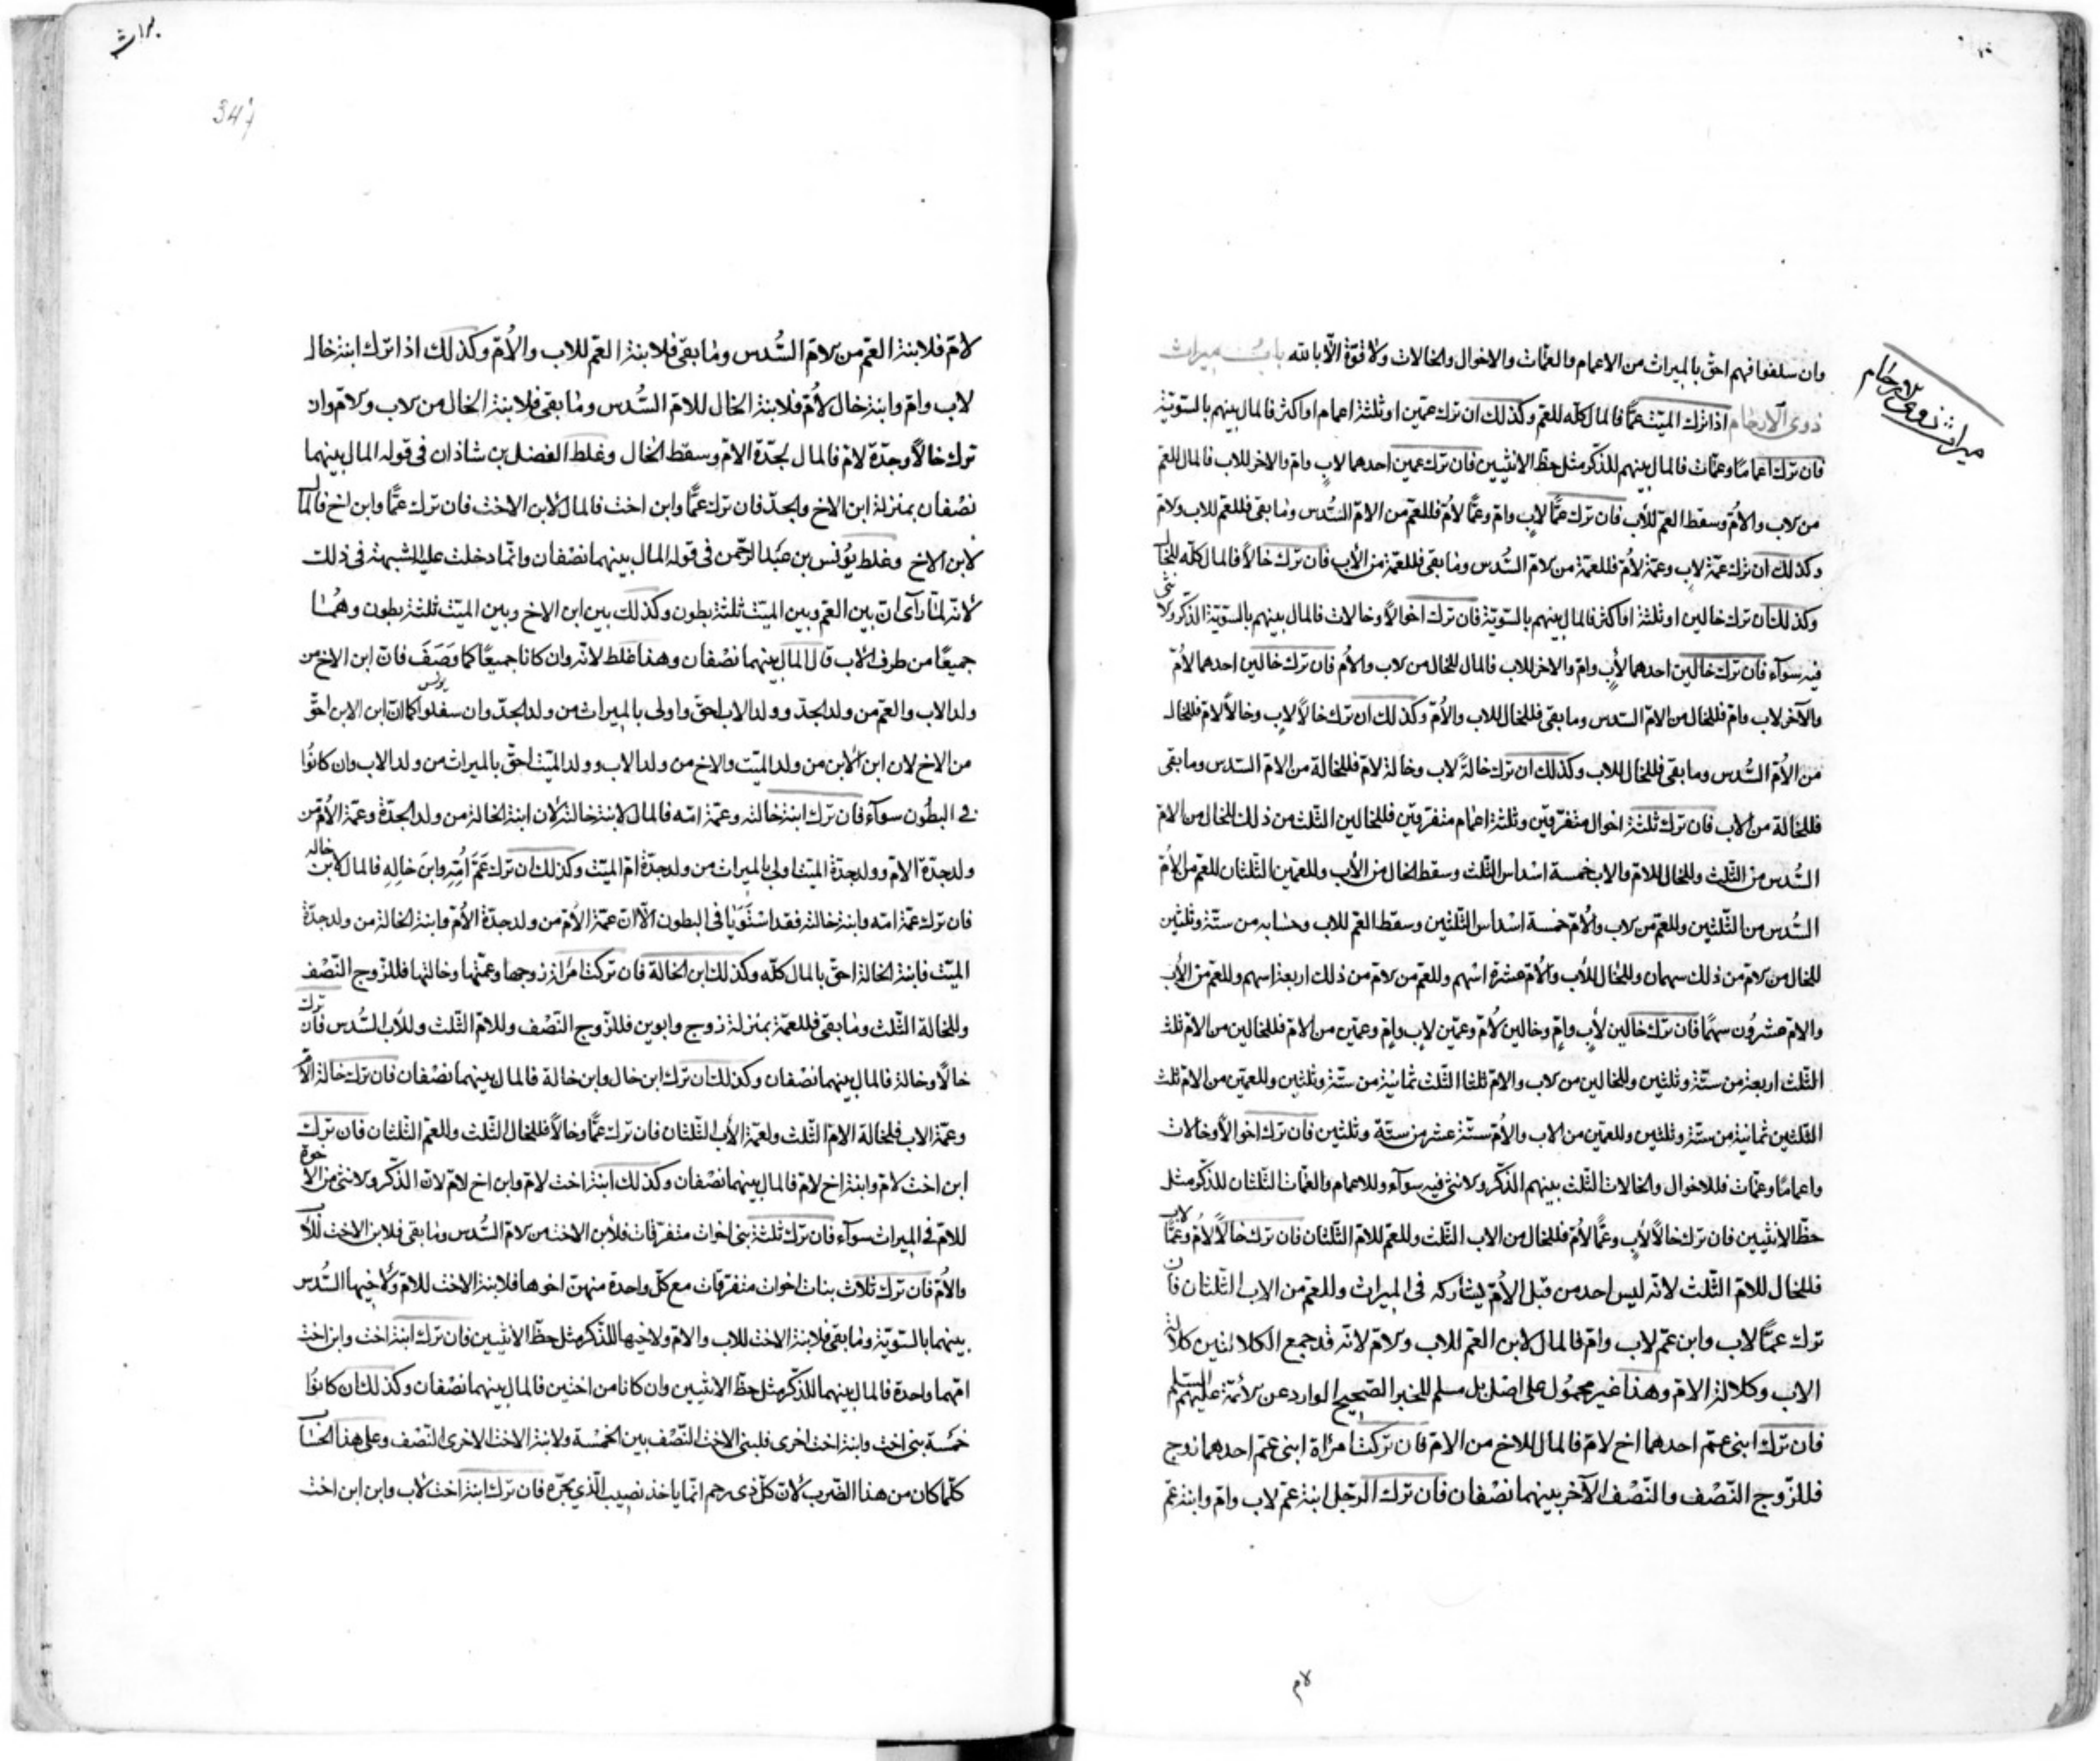 ميراث ذوى الارحام
وان سلفوا فهم احق بالميراث من الاعمام والعمّات والاخوال والخالات ولا قوّة الّا بالله باب ميراث
ذوى الارحام اذا ترك الميّت عمًّا فالمال كلّه للعم وكذلك ان ترك عمّين او ثلثة اعمام او اكثر فالمال بينهم بالسّويّة
فان ترك اعمامًا وعمّات فالمال بينهم للذّكر مثل حظّ الانثيين فان ترك عمين احدهما لاب وامّ والاخر للاب فالمال للعم
من الاب والامّ وسقط العمّ للاب فان ترك عمًّا لاب وامّ وعمًّا لامّ فللعمّ من الامّ السّدس وما بقى فللعم للاب ولامّ
وكذلك ان ترك عمّة لاب وعمّة لامّ فللعمّة من الامّ السّدس وما بقى فللعمّة من الاب فان ترك خالاً فالمال كلّه للخال
وكذلك ان ترك خالين او ثلثة او اكثر فالمال بينهم بالسّويّة فان ترك اخوالاً وخالات فالمال بينهم بالسّويّة الذّكر والانثى
فيه سوآء فان ترك خالين احدهما لاب وامّ والاخر للاب فالمال للخال من الاب والامّ فان ترك خالين احدهما لامّ
والآخر لاب وامّ فللخال من الامّ السّدس وما بقى فللخال للاب والامّ وكذلك ان ترك خالاً لاب وخالاً لامّ فللخال
من الامّ السّدس وما بقى فللخال للاب وكذلك ان ترك خالةً لاب وخالة لامّ فللخالة من الامّ السّدس وما بقى
فللخالة من الاب فان ترك ثلثة اخوال متفرّقين وثلثة اعمام متفرّقين فللخالين الثّلث من ذلك للخال من الامّ
السّدس من الثّلث وللخال للامّ والاب خمسة اسداس الثّلث وسقط الخال من الاب وللعمّين الثّلثان للعمّ من الامّ
السّدس من الثّلثين وللعمّ من الاب والامّ خمسة اسداس الثّلثين وسقط العمّ للاب وحسابه من ستّة وثلثين
للخال من الامّ من ذلك سهمان وللخال للاب والامّ عشرة اسهم وللعمّ من الامّ من ذلك اربعة اسهم وللعمّ من الاب
والامّ عشرون سهمًا فان ترك خالين لاب وامّ وخالين لامّ وعمّين لاب وامّ وعمّين من الامّ فللخالين من الامّ ثلث
الثّلث اربعة من ستّة وثلثين وللخالين من الاب والامّ ثلثا الثّلث ثمانية من ستّة وثلثين وللعمّين من الامّ ثلث
الثّلثين ثمانية من ستّة وثلثين وللعمّين من الاب والامّ ستّة عشر من ستّة وثلثين فان ترك اخوالاً وخالات
واعمامًا وعمّات فللاخوال والخالات الثّلث بينهم الذّكر والانثى فيه سوآء وللاعمام والعمّات الثّلثان للذّكر مثل
حظّ الانثيين فان ترك خالاً لاب وعمًّا لامّ فللخال من الاب الثّلث وللعمّ للامّ الثّلثان فان ترك خالاً لامّ وعمًّا لاب
فللخال للامّ الثّلث لانّه ليس احد من قبل الامّ يشاركه فى الميراث وللعمّ من الاب الثّلثان فان
ترك عمًّا لاب وابن عمّ لاب وامّ فالمال لابن العمّ للاب والامّ لانّه قد جمع الكلالتين كلالة
الاب وكلالة الامّ وهذا غير محمول على اصل بل مسلم للخبر الصّحيح الوارد عن الائمّة عليهم السلم
فان ترك ابنى عمّ احدهما اخ لامّ فالمال للاخ من الامّ فان تركت امرأة ابنى عمّ احدهما زوج
فللزّوج النّصف والنّصف الآخر بينهما نصفان فان ترك الرّجل ابنة عمّ لاب وامّ وابنة عمّ
لامّ
347
لامّ فلابنة العمّ من الامّ السّدس وما بقى فلابنة العمّ للاب والامّ وكذلك اذا ترك ابنة خال
لاب وامّ وابنة خال لامّ فلابنة الخال للامّ السّدس وما بقى فلابنة الخال من الاب والامّ وان
ترك خالاً وجدّة لامّ فالمال لجدّة الامّ وسقط الخال وغلط الفضل بن شاذان فى قوله المال بينهما
نصفان بمنزلة ابن الاخ والجدّ فان ترك عمًّا وابن اخت فالمال لابن الاخت فان ترك عمًّا وابن اخ فالمال
لابن الاخ وغلط يونس بن عبد الرّحمن فى قوله المال بينهما نصفان وانّما دخلت عليه الشبهة فى ذلك
لانّه لمّا رآى انّ بين العمّ وبين الميّت ثلثة بطون وكذلك بين ابن الاخ وبين الميّت ثلثة بطون وهما
جميعًا من طرف الاب قال المال بينهما نصفان وهذا غلط لانّه وان كانا جميعًا كما وصف فانّ ابن الاخ من
ولد الاب والعمّ من ولد الجدّ وولد الاب احقّ واولى بالميراث من ولد الجدّ وان سفلوا يونس كما انّ ابن الابن احقّ
من الاخ لان ابن الابن من ولد الميّت والاخ من ولد الاب وولد الميّت احقّ بالميراث من ولد الاب وان كانوا
فى البطون سوآء فان ترك ابنة خالته وعمّة امّه فالمال لابنة خالته لان ابنة الخالة من ولد الجدّة وعمّة الامّ من
ولد جدّة الامّ وولد جدة الميّت اولى بالميراث من ولد جدّة امّ الميّت وكذلك ان ترك عمّ امّه وابن خاله فالمال لابن خاله
فان ترك عمّة امّه وابنة خالته فقد استويا فى البطون الّا انّ عمّة الامّ من ولد جدّة الامّ وابنة الخالة من ولد جدّة
الميّت فابنة الخالة احقّ بالمال كلّه وكذلك ابن الخالة فان تركت امرأة زوجها وعمّتها وخالتها فللزّوج النّصف
وللخالة الثّلث وما بقى فللعمّة بمنزلة زوج وابوين فللزّوج النّصف وللامّ الثّلث وللاب السّدس فان ترك
خالاً وخالة فالمال بينهما نصفان وكذلك ان ترك ابن خال وابن خالة فالمال بينهما نصفان فان ترك خالة الامّ
وعمّة الاب فلخالة الامّ الثّلث ولعمّة الاب الثّلثان فان ترك عمًّا وخالاً فللخال الثّلث وللعمّ الثّلثان فان ترك
ابن اخت لامّ وابنة اخ لامّ فالمال بينهما نصفان وكذلك ابنة اخت لامّ وابن اخ لامّ لانّ الذّكر والانثى من الاخوة
للامّ فى الميراث سوآء فان ترك ثلثة بنى اخوات متفرّقات فلابن الاخت من الامّ السّدس وما بقى فلابن الاخت للاب
والامّ فان ترك ثلاث بنات اخوات متفرّقات مع كلّ واحدة منهنّ اخوها فلابنة الاخت للامّ ولاخيها السّدس
بينهما بالسّويّة وما بقى فلابنة الاخت للاب والامّ ولاخيها للذّكر مثل حظّ الانثيين فان ترك ابنة اخت وابن اخت
امّهما واحدة فالمال بينهما للذّكر مثل حظّ الانثيين وان كانا من اختين فالمال بينهما نصفان وكذلك ان كانوا
خمسة بنى اخت وابنة اخت اخرى فلبنى الاخت النّصف بين الخمسة ولابنة الاخت الاخرى النّصف وعلى هذا الحساب
كلّما كان من هذا الضّرب لانّ كلّ ذى رحم انّما ياخذ نصيب الّذى يجرّه فان ترك ابنة اخت لاب وابن ابن اخت